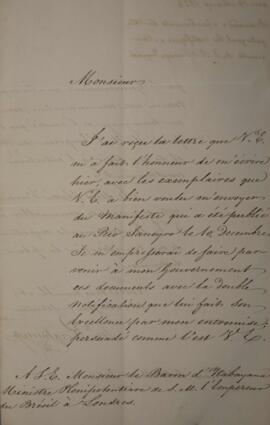 Monsieur
J'ai reçu la lettre que V. E.
m'a fait l'honneur de m'écrire
hier, avec les exemplaires que
V. E. a bien voulu m'envoyer
du Manifeste qui a été publié
au Rio Janeyro le 10 Decembre
Je m'empresserai de faire par-
venir à mon Gouvernement
ces documents avec la double
notification que lui fait Son
Excellence par mon entremise,
persuadé comme l'est V. E.
A S. E. Monsieur le Baron d'Itabayana
Ministre Plenipotentiaire de S. M. l'Empereur
du Brésil à Londres.